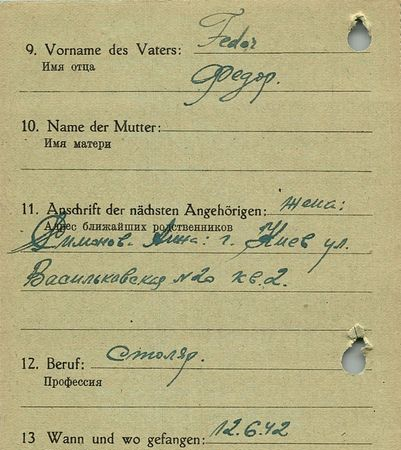 9. Vorname des Vaters: Fedor
Имя отца Федор.
10. Name der Mutter:
Имя матери
11. Anschrift der nächsten Angehörigen: жена:
Адрес ближайших родственников
Анна: г. Киев ул.
Васильковская №20 кв. 2.
12. Beruf: Столяр.
Профессия
13 Wann und wo gefangen: 12.6.42